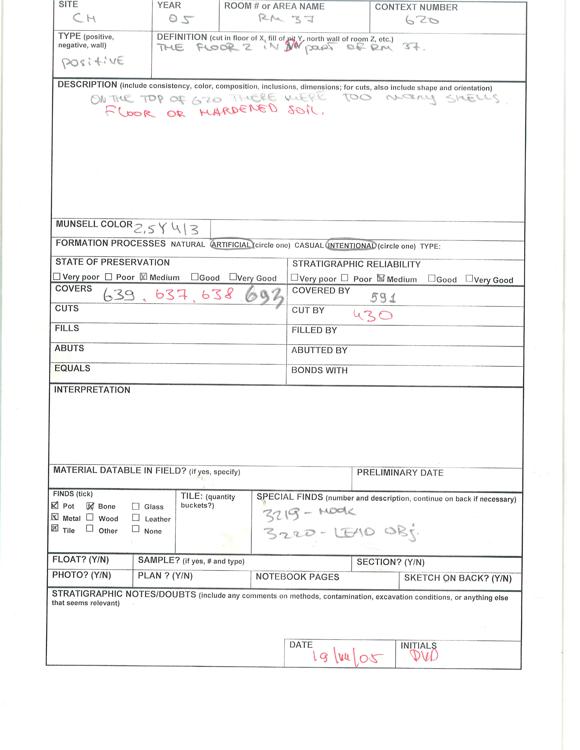 SITE YEAR ROOM # OR AREA NAME CONTEXT NUMBER
CH 05 RM 37 620
TYPE (positive, negative, wall) DEFINITION (cut in floor of X, fill of pit Y, north wall of room Z, etc.)
positive THE FLOOR 2 IN part OF RM 37.
DESCRIPTION (include consistency, color, composition, inclusions, dimensions; for cuts, also include shape and orientation)
ON THE TOP OF 620 THERE WERE TOO MANY SHELLS
FLOOR OR HARDENED SOIL.
MUNSELL COLOR 2,5Y 4/3
FORMATION PROCESSES NATURAL ARTIFICIAL (circle one) CASUAL INTENTIONAL (circle one) TYPE:
STATE OF PRESERVATION STRATIGRAPHIC RELIABILITY
Very poor Poor Medium Good Very Good Very poor Poor Medium Good Very Good
COVERS 639, 637, 638 693 COVERED BY 591
CUTS CUT BY 430
FILLS FILLED BY
ABUTS ABUTTED BY
EQUALS BONDS WITH
INTERPRETATION
MATERIAL DATABLE IN FIELD? (if yes, specify) PRELIMINARY DATE
FINDS (tick) TILE: (quantity buckets?) SPECIAL FINDS (number and description, continue on back if necessary)
Pot Bone Glass 3219 - HOOK
Metal Wood Leather 3220 - LEAD OBJ.
Tile Other None
FLOAT? (Y/N) SAMPLE? (if yes, # and type) SECTION? (Y/N)
PHOTO? (Y/N) PLAN ? (Y/N) NOTEBOOK PAGES SKETCH ON BACK? (Y/N)
STRATIGRAPHIC NOTES/DOUBTS (include any comments on methods, contamination, excavation conditions, or anything else
that seems relevant)
DATE INITIALS
19/VII/05 DVD